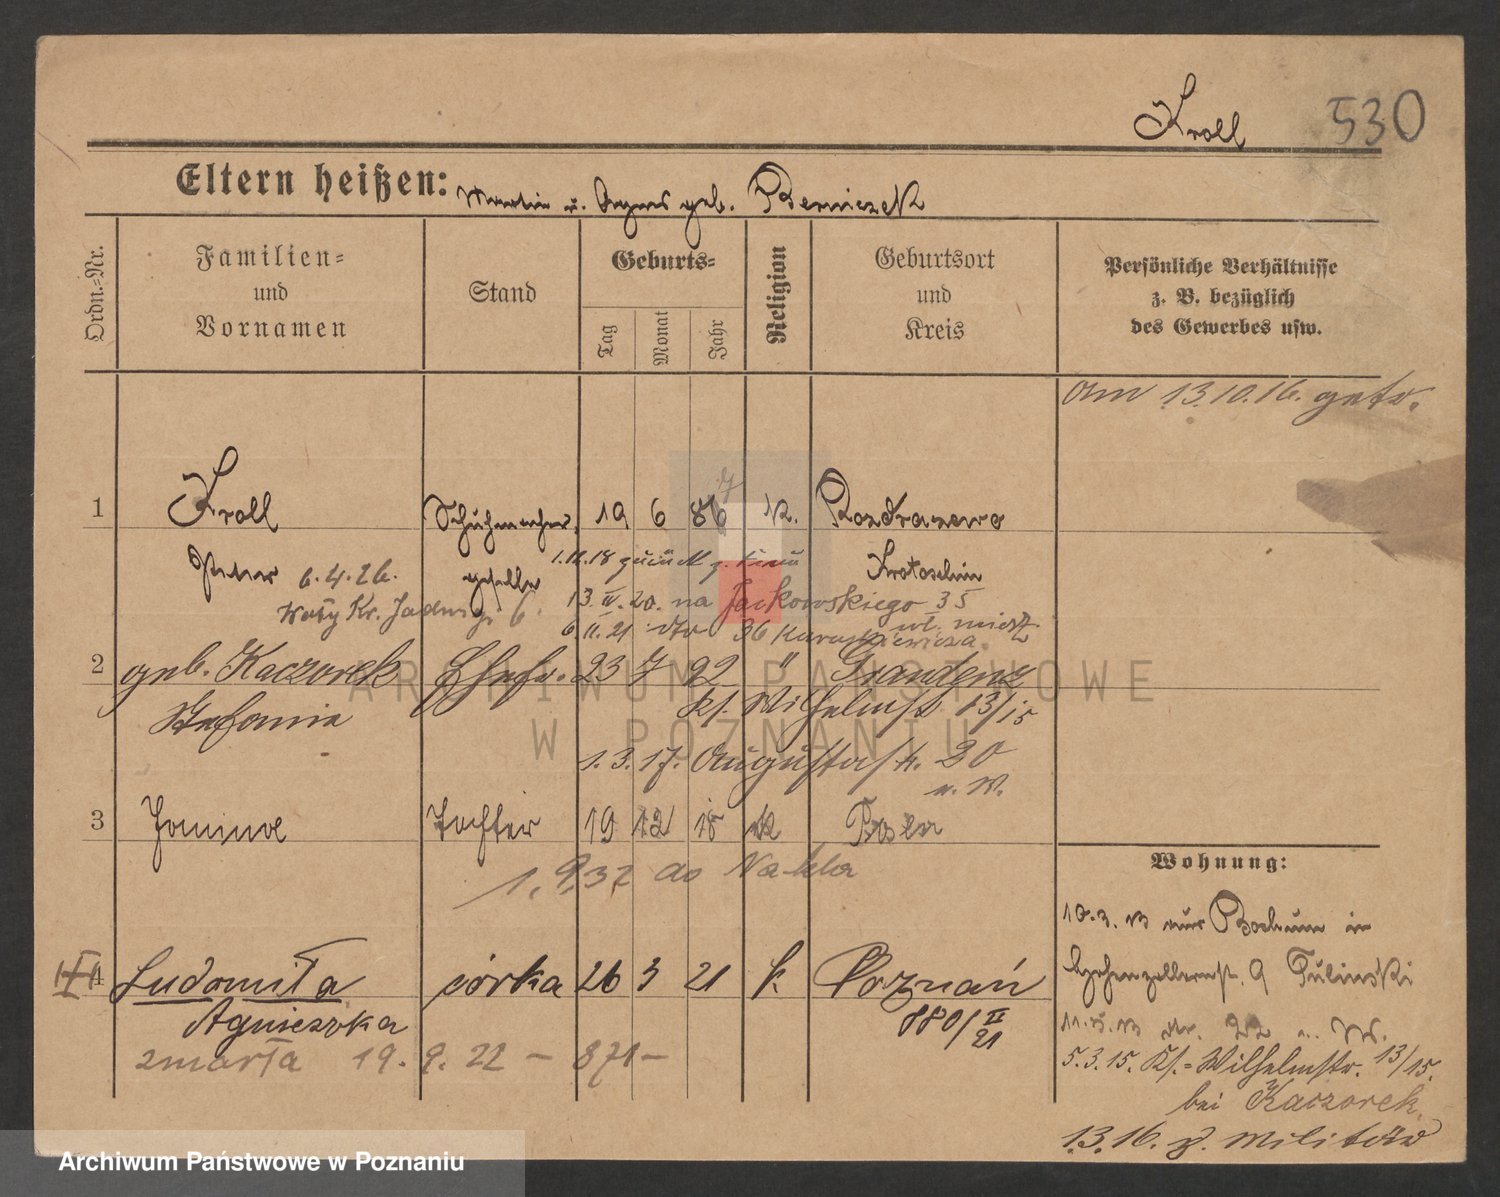 Kroll 530
Eltern heißen: Martin u. Agnes geb. Berniczek
Ordn.-Nr. Familien- und Vornamen Stand Geburts- Tag Monat Jahr Religion Geburtsort und Kreis Persönliche Verhältnisse z. B. bezüglich des Gewerbes usw.
am 13.10.16. getr.
1 Kroll Schuhmacher 19 6 86 7 K. Rozdrazewo
Peter 6.4.26. geselle 1.11.18 zurück Krotoschin
Jadwigi 6. 13.IV.20. na Jackowskiego 35
6.II.21 dto 36 wł. miesz.
2 geb. Kaczorek Ehefr. 23 7 92 " Graudenz
Stefania Ks. Wilhelmst 13/15
1.3.17. Augustastr. 20
u. W.
3 Janina Tochter 19 12 15 K Posen
1.9.37 do Nakła
Wohnung:
10.3.13 aus Bochum in
Hohenzollernst. 9 Tulinski
4 Ludomiła córka 26 3 21 k. Poznań
Agnieszka 880/II 21
11.5.13 22 u. W.
zmarła 19.9.22 – 871 –
5.3.15. Ks.=Wilhelmstr. 13/15.
bei Kaczorek
1.3.16. z. Militär
ARCHIWUM PAŃSTWOWE
W POZNANIU
Archiwum Państwowe w Poznaniu